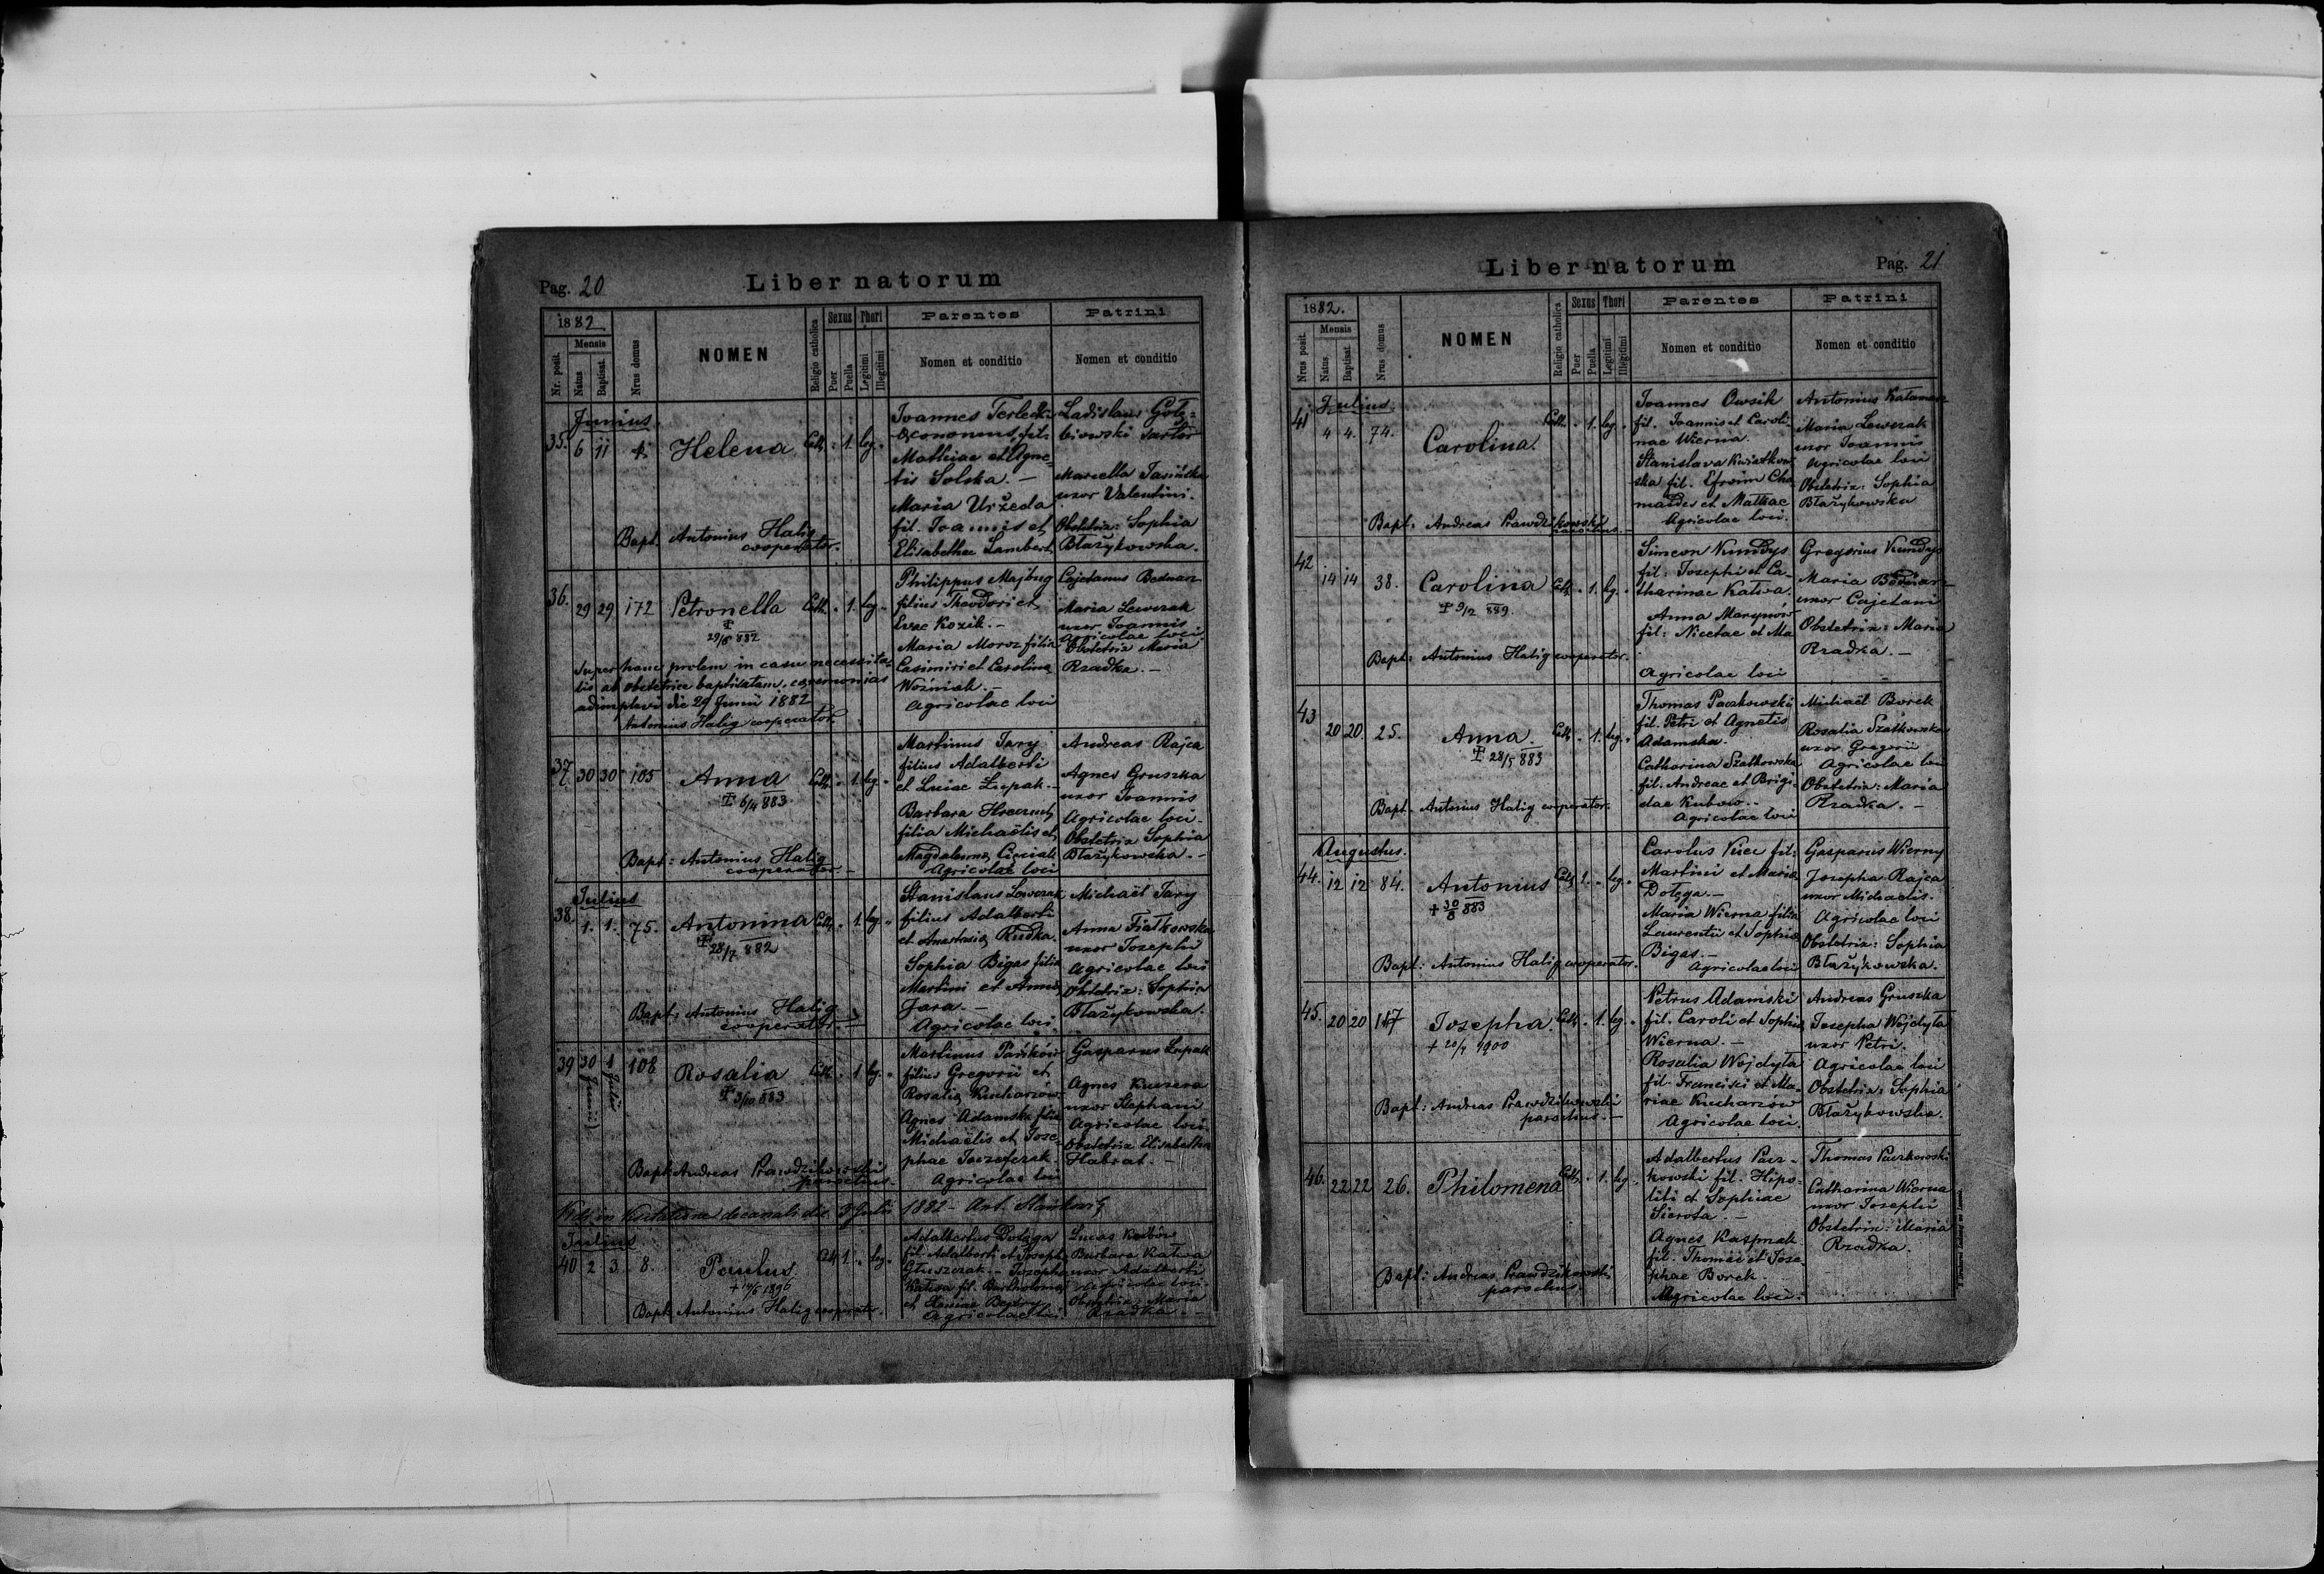 Pag. 20
Liber natorum
1882
Nr. posit.
Mensis
Natus
Baptisat.
Nrus domus
NOMEN
Religio catholica
Sexus
Puer
Puella
Thori
Legitimi
Illegitimi
Parentes
Nomen et conditio
Patrini
Nomen et conditio
Junius
35. 6 11 Helena Cath. " 1. leg. "
Joannes Terlecki
oeconomus, fil.
Mathiae et Agne-
tis Solska. —
Maria Urzeda
fil. Joannis et
Elisabethae Lambert
Ladislaus Gołę-
biowski sartor
Marcella Jasińska
uxor Valentini.
Obstetrix: Sophia
Błażykowska.
Bapt. Antonius Halig
cooperator.
36. 29 29 172 Petronella Cath. " 1. leg. "
29/6 882
Philippus Majbug
filius Theodori et
Evae Kozik. —
Maria Moroz filia
Casimiri et Carolina
Woźniak. —
Agricolae loci
Cajetanus Bednarz
Maria Lewczak
uxor Joannis
Agricolae loci
Obstetrix Maria
Rzadka. —
Super hanc prolem in casu necessita-
tis ab obstetrice baptisatam, ceremonias
adimplevi die 29 Junii 1882
Antonius Halig cooperator.
37. 30 30 105 Anna Cath. " 1. leg. "
6/4 883
Martinus Jary
filius Adalberti
et Luciae Łupak. —
Barbara
filia Michaëlis et
Magdalenae
Agricolae loci
Andreas Rajca
Agnes Gruszka
uxor Joannis
Agricolae loci.
Obstetrix Sophia
Błażykowska. —
Bapt: Antonius Halig
cooperator. —
Julius
38. 1. 1. 75. Antonina Cath. " 1. leg. "
28/7 882
Stanislaus Lewczak
filius Adalberti
et Anastasia Rudka.
Sophia Bigas filia
Martini et Anna
Jara. —
Agricolae loci
Michaël Jary
Anna Fiałkowska
uxor Josephi
Agricolae loci
Obstetrix: Sophia
Błażykowska.
Bapt: Antonius Halig
cooperator. —
39 30 Junii 1 Julii 108 Rosalia Cath. " 1 leg. "
3/10 883
Martinus Pańków
filius Gregorii et
Rosalia Kucharzów
Agnes Adamska filia
Michaëlis et Jose-
phae Jozefczak.
Agricolae loci
Gasparus Łupak
Agnes Kuczera
uxor Stephani
Agricolae loci.
Obstetrix Elisabetha
Habrat. —
Bapt. Andreas Prawdzikowski
parochus.
Vidi in visitatione decanali die 3 Julii 1882 — Ant.
Julius
40 2 3 8. Paulus Cath 1. " leg. "
+ 14/6 1896
Adalbertus Dołęga
fil. Adalberti et Joseph.
Głuszczak. — Josepha
Kalwa fil. Bartholomei
et Xeniae
Agricolae loci.
Lucas
Barbara Kalwa
uxor Adalberti
Agricolae loci.
Obstetrix: Maria
Rzadka. —
Bapt. Antonius Halig cooperator.
Liber natorum
Pag. 21
1882.
Nrus posit.
Mensis
Natus
Baptisat.
Nrus domus
NOMEN
Religio catholica
Sexus
Puer
Puella
Thori
Legitimi
Illegitimi
Parentes
Nomen et conditio
Patrini
Nomen et conditio
Julius
41 4 4. 74. Carolina. Cath. " 1. leg. "
Joannes Owsik
fil. Joannis et Caroli-
nae Wierna.
Stanislava Kwiatkow-
ska fil. Efroim Cha
mades et Malkae
Agricolae loci.
Antonius
Maria Lewczak
uxor Joannis
Agricolae loci
Obstetrix: Sophia
Błażykowska
Bapt: Andreas Prawdzikowski
parochus. —
42 14 14 38. Carolina Cath. " 1. leg. "
9/12 889.
Simeon Kundys
fil: Josephi et Ca-
tharinae Kalwa.
Anna Marynów
fil: Nicetae et Ma
Agricolae loci
Gregorius Kundys
Maria Bednarz
uxor Cajetani
Obstetrix: Maria
Rzadka. —
Bapt: Antonius Halig cooperator.
43 20 20. 25. Anna. Cath. " 1. leg. "
28/5 883
Thomas Paczkowski
fil. Petri et Agnetis
Adamska.
Catharina Szatkowska
fil. Andreae et Brigi-
dae Kubow. —
Agricolae loci
Michaël Borek
Rosalia Szatkowska
uxor Gregorii
Agricolae loci
Obstetrix: Maria
Rzadka. —
Bapt. Antonius Halig cooperator.
Augustus.
44. 12 12 84. Antonius Cath. 1. " leg. "
+ 30/8 883
Carolus Kuca fil:
Martini et Maria
Dołęga. —
Maria Wierna filia
Laurentii et Sophia
Bigas. —
Agricolae loci
Gasparus Wierny
Josepha Rajca
uxor Michaelis.
Agricolae loci
Obstetrix: Sophia
Błażykowska.
Bapt: Antonius Halig cooperator.
45. 20 20 Josepha. Cath. " 1. leg. "
+ 20/4 1900
Petrus Adamski
fil. Caroli et Sophia
Wierna. —
Rosalia Wojdyła
fil. Francisci et Ma-
riae Kucharzów
Agricolae loci.
Andreas Gruszka
Josepha Wojdyła
uxor Petri.
Agricolae loci
Obstetrix: Sophia
Błażykowska.
Bapt: Andreas Prawdzikowski
parochus. —
46. 22 22 26. Philomena Cath. " 1. leg. "
Adalbertus Pacz-
kowski fil. Hipo-
liti et Sophiae
Sierota. —
Agnes Kasprzak
fil. Thomae et Jose-
phae Borek.
Agricolae loci.
Thomas Paczkowski
Catharina Wierna
uxor Josephi
Obstetrix: Maria
Rzadka.
Bapt: Andreas Prawdzikowski
parochus.